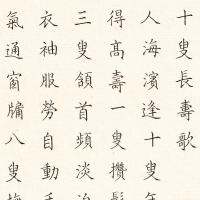 十叟長壽歌
人海濱逢十叟
得髙壽一叟攢
三叟頷首頻淡
衣袖服勞自動
氣通窗牖八叟